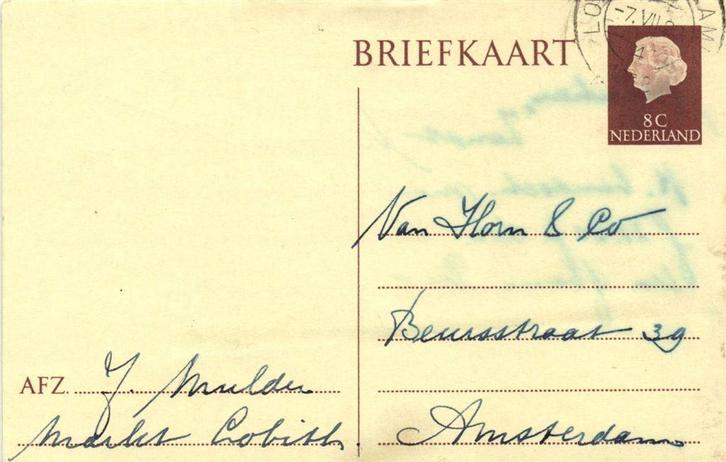 BRIEFKAART
8 C
NEDERLAND
Van Horn & Co
Beursstraat 39
Amsterdam
AFZ. J. Mulder
Markt Lobith